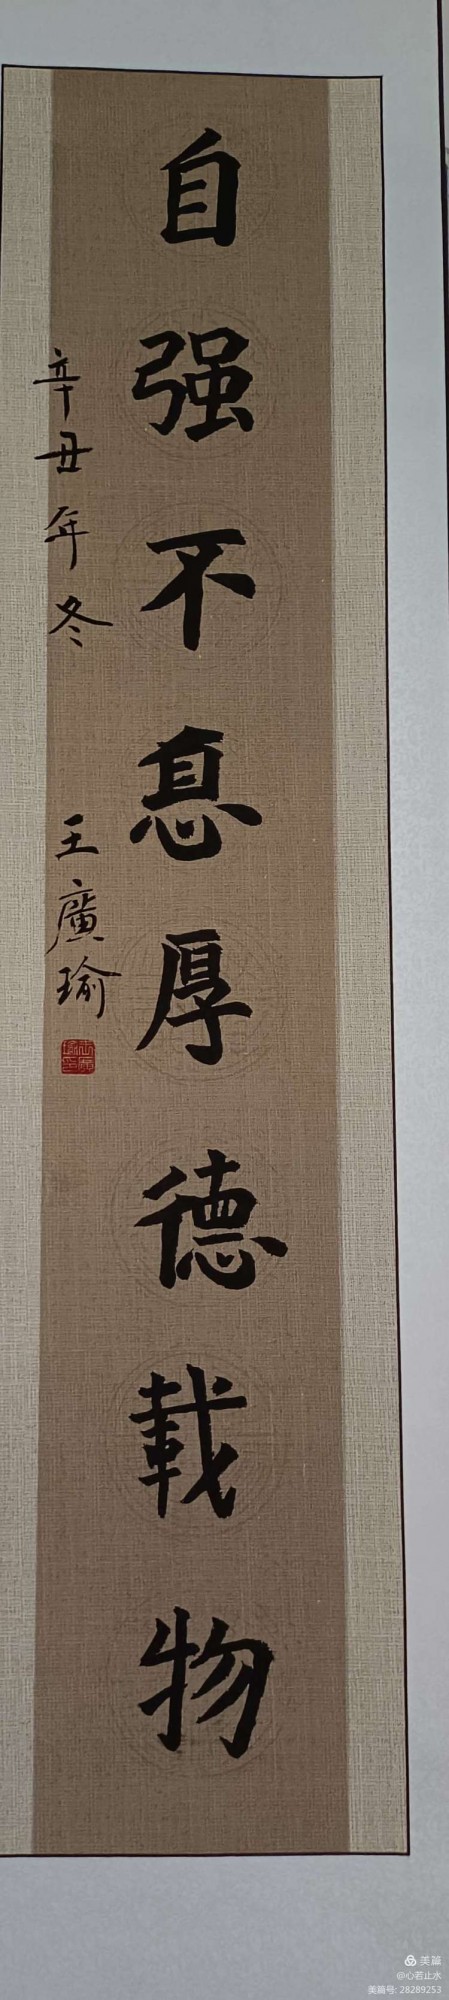 自强不息厚德載物
辛丑年冬 王廣瑜
美篇
@心若止水
美篇号: 28289253